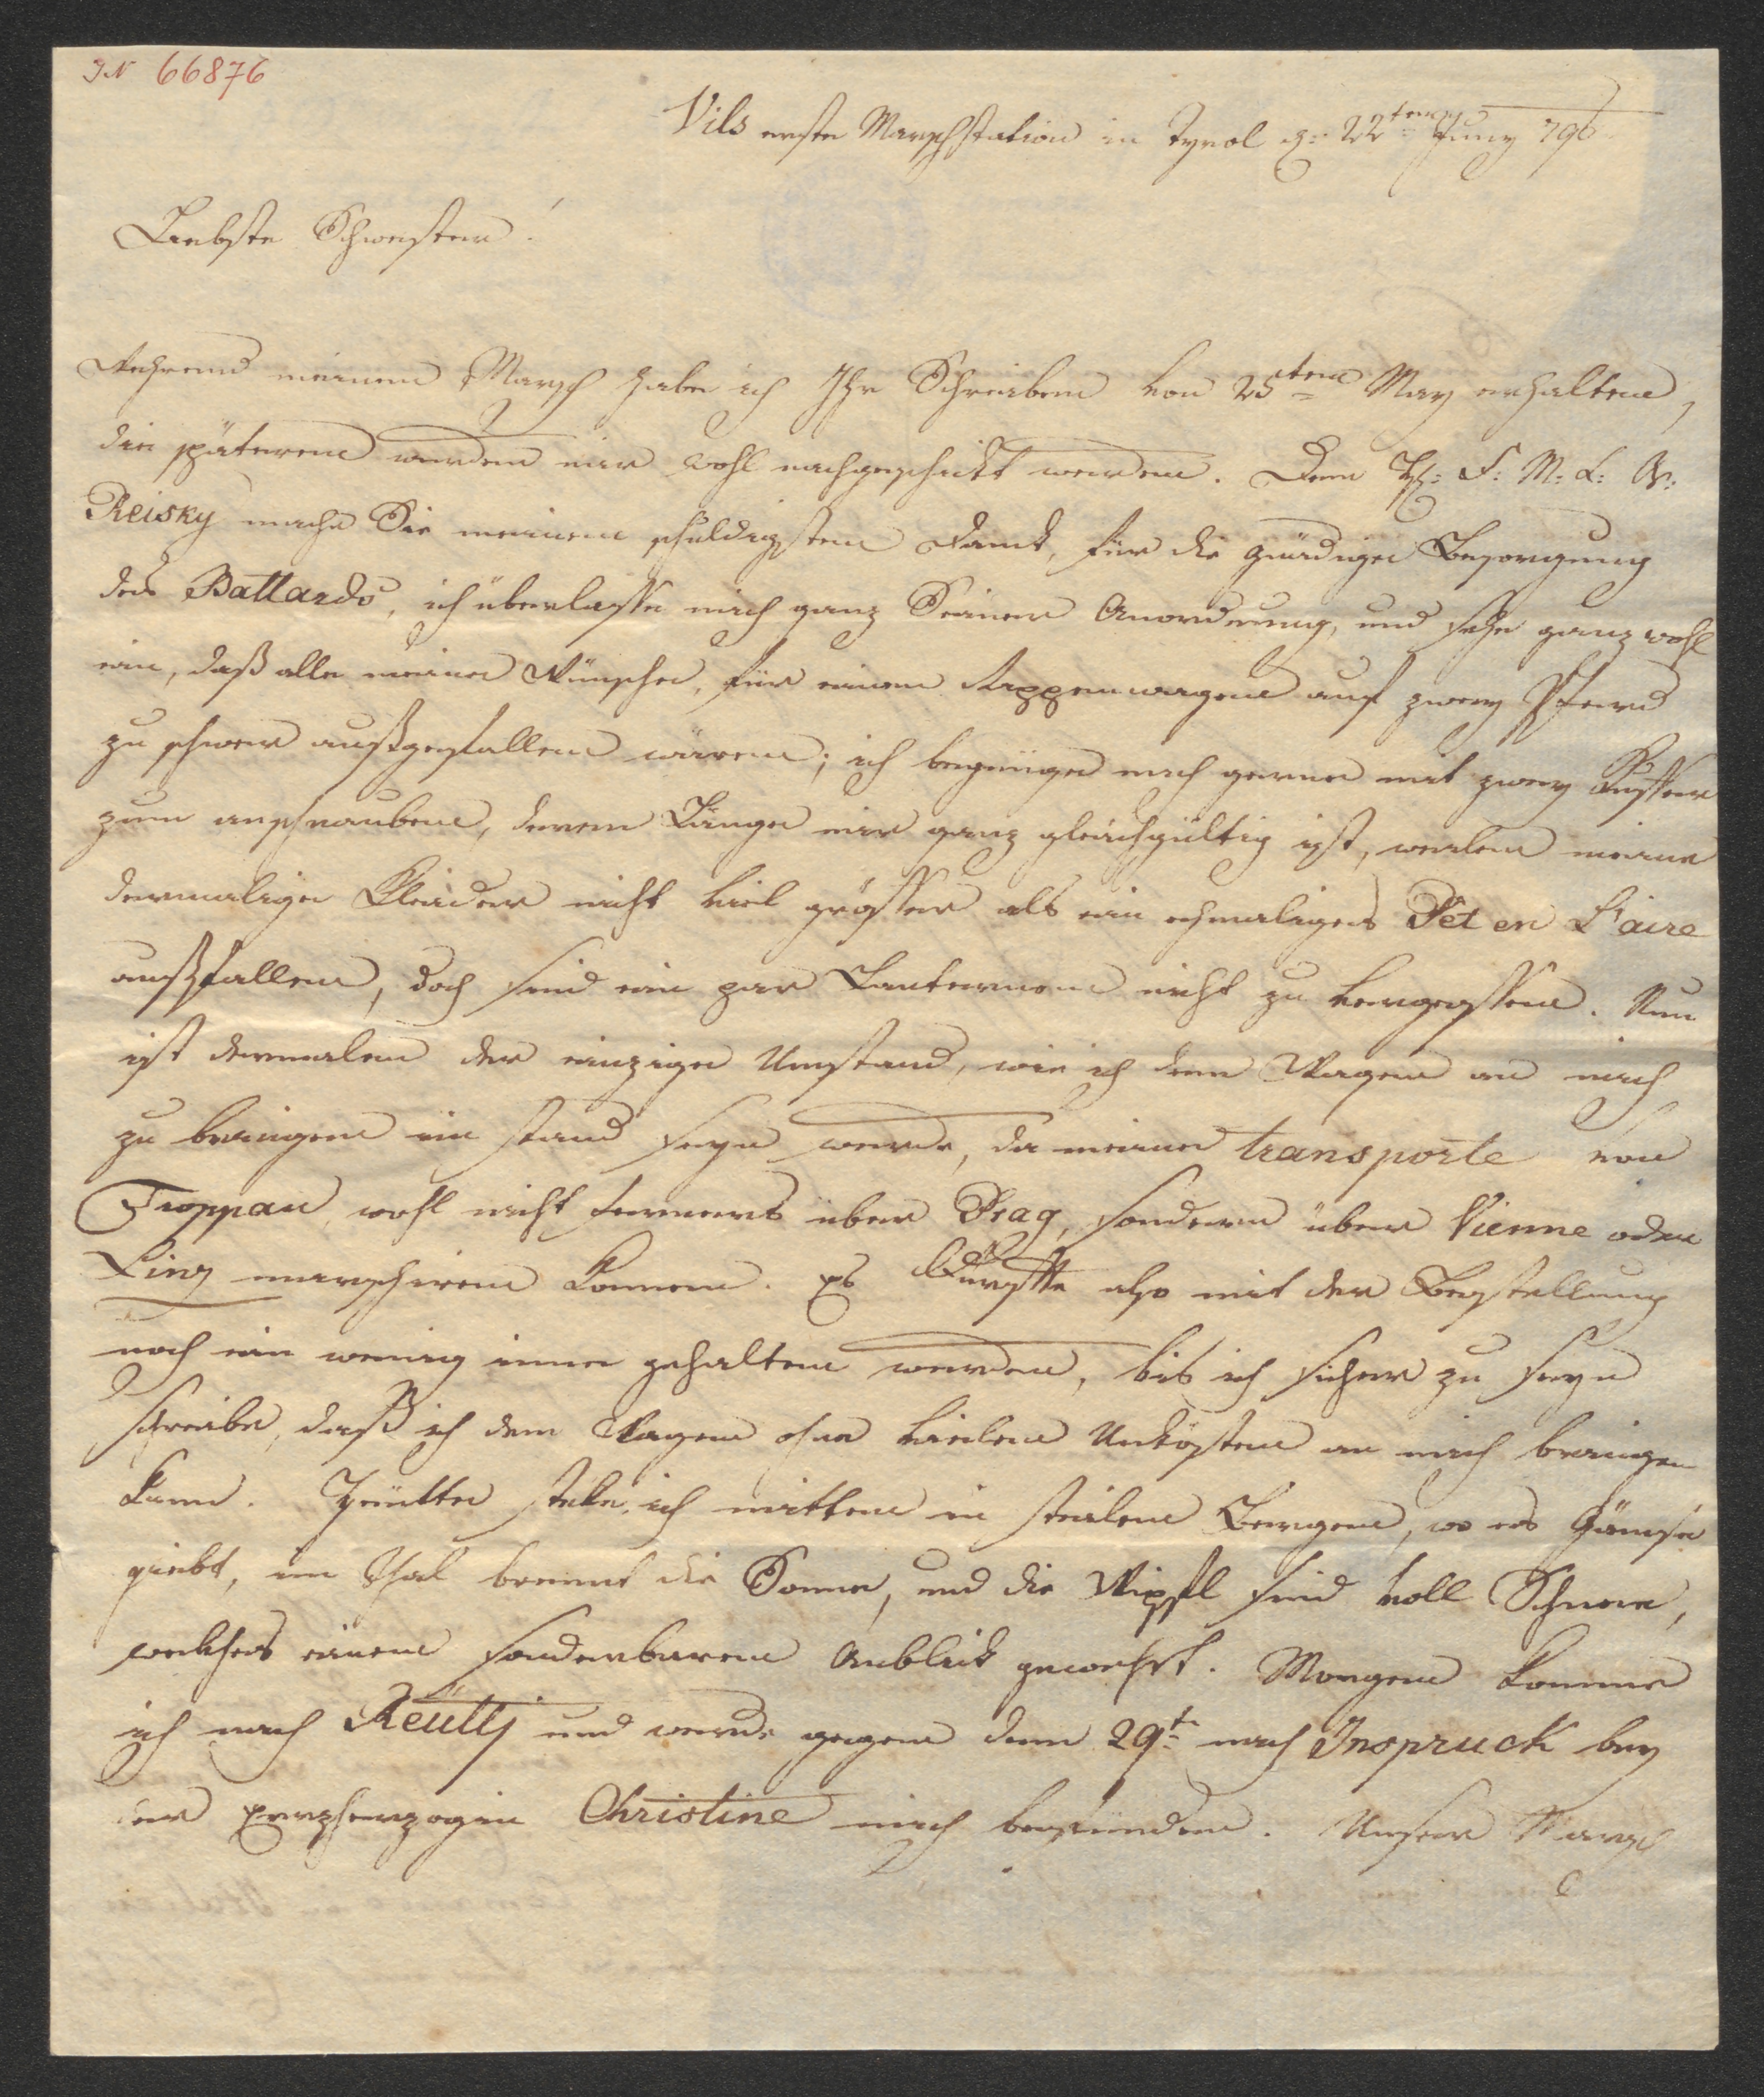 IN 66876
Vils erste Marschstation in Tyrol d: 22ten Juny 796
Liebste Schwester!
Wehrend meinem Marsch habe ich Ihr Schreiben von 25ten May erhalten,
die späteren werden mir wohl nachgeschikt werden. Dem H: F: M: L: B:
Reisky mache Sie meinen schuldigsten Dank, für die gnädige Besorgung
des Battards, ich überlasse mich ganz Seiner Anordnung, und sehe ganz wohl
ein, daß alle meine Wünsche, für einen wagen auf zwey Pferd
zu schwer außgefallen wären; ich begnüge mich gerne mit zwey Kuffer
zum anschrauben, deren Länge mir ganz gleichgültig ist, weilen meine
dermalige Kleider nicht viel grösser als ein ehmaliges Pet en L'aire
außfallen, doch sind ein par Lanternen nicht zu vergessen. Nun
ist dermalen der einzige Umstand, wie ich den Wagen an mich
zu bringen im stand seyn werde, da meine transporte von
Troppau, wohl nicht ferners über Prag, sondern über Vienne oder
Linz marschiren komen. Es dürfte also mit der Bestellung
noch ein wenig inne gehalten werden, bis ich sicher zu seyn
schreibe, daß ich den Wagen ohne vielen Unkösten an mich bringen
kann. Heutte steke ich mitten in steilen Bergen, wo es Gämse
giebt, im Thal brennt die Sonne, und die Wipfl sind voll Schnee,
welches einen sonderbaren Anblick gewehrt. Morgen komme
ich nach Reütti und werde gegen den 29t nach Inspruck bey
der Erzherzogin Christine mich befinden. Unser Marsch